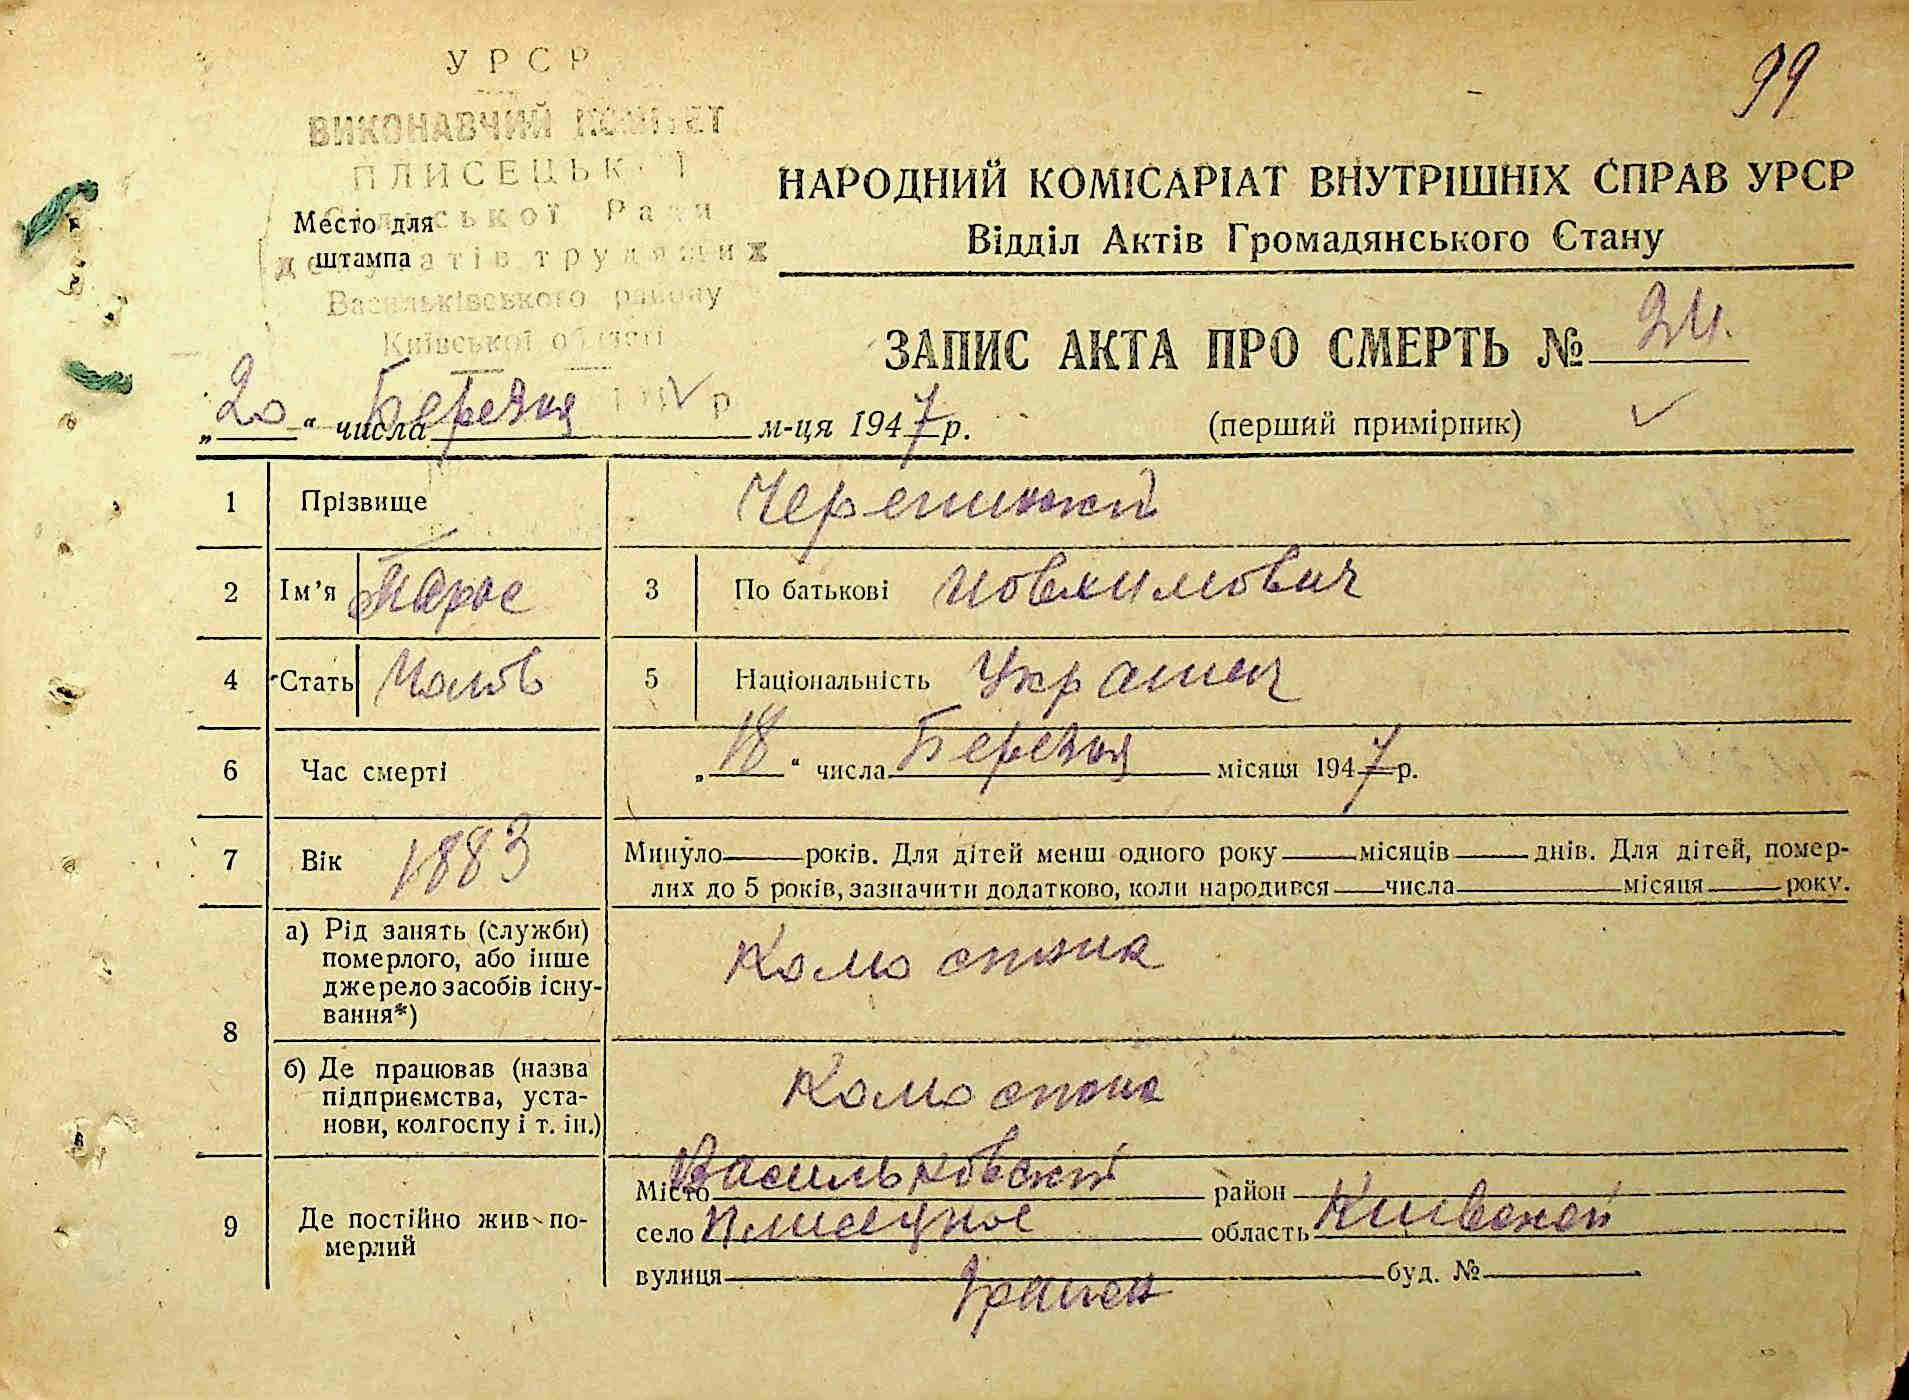 99
УРСР
ВИКОНАВЧИЙ КОМІТЕТ
ПЛИСЕЦЬКОЇ
Сільської Ради
депутатів трудящих
Васильківського району
Київської області
Место для
штампа
НАРОДНИЙ КОМІСАРІАТ ВНУТРІШНІХ СПРАВ УРСР
Відділ Актів Громадянського Стану
ЗАПИС АКТА ПРО СМЕРТЬ № 24.
„20“ числа Березня м-ця 1947 р.
(перший примірник)
1 Прізвище
2 Ім’я Тарас 3 По батькові Иовхимович
4 Стать Чолов 5 Національність Украинец
6 Час смерті „18“ числа Березня місяця 1947 р.
7 Вік 1883 Минуло — років. Для дітей менш одного року — місяців — днів. Для дітей, помер-
лих до 5 років, зазначити додатково, коли народився — числа — місяця — року.
8 а) Рід занять (служби)
померлого, або інше
джерело засобів існу-
вання*)
б) Де працював (назва
підприємства, уста-
нови, колгоспу і т. ін.)
9 Де постійно жив по-
мерлий
Місто Васильковский район
село Плисецкое область Киевской
вулиця буд. №